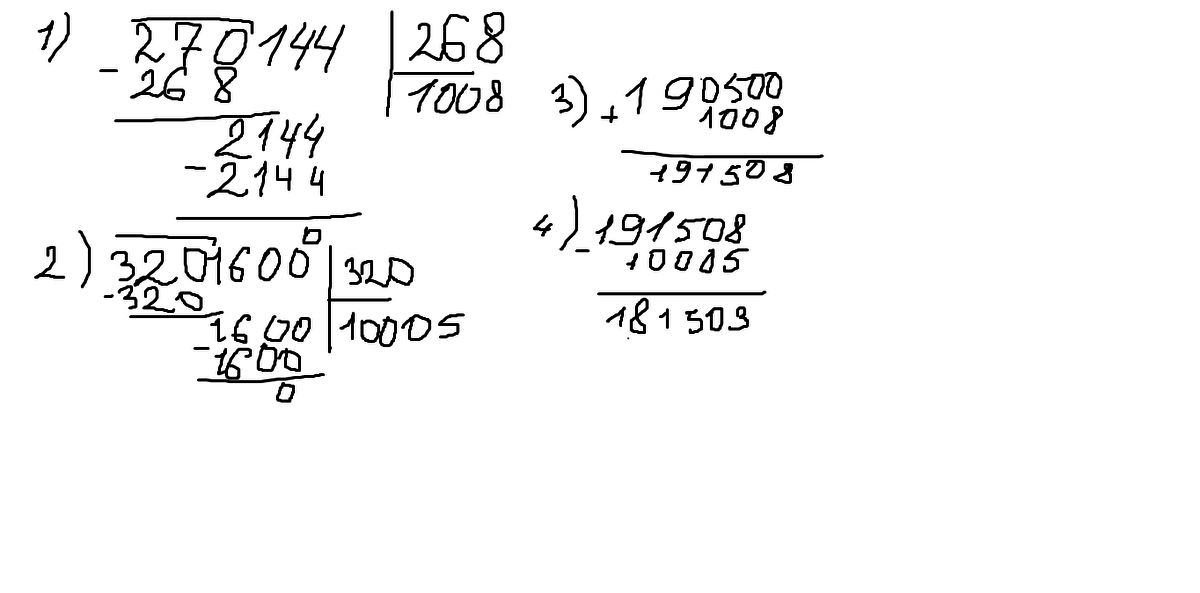 1) - 270144 | 268
268 | 1008
2144
- 2144
0
2) 3201600 | 320
- 320 | 10005
1600
- 1600
0
3) + 190500
1008
191508
4) - 191508
10005
181503